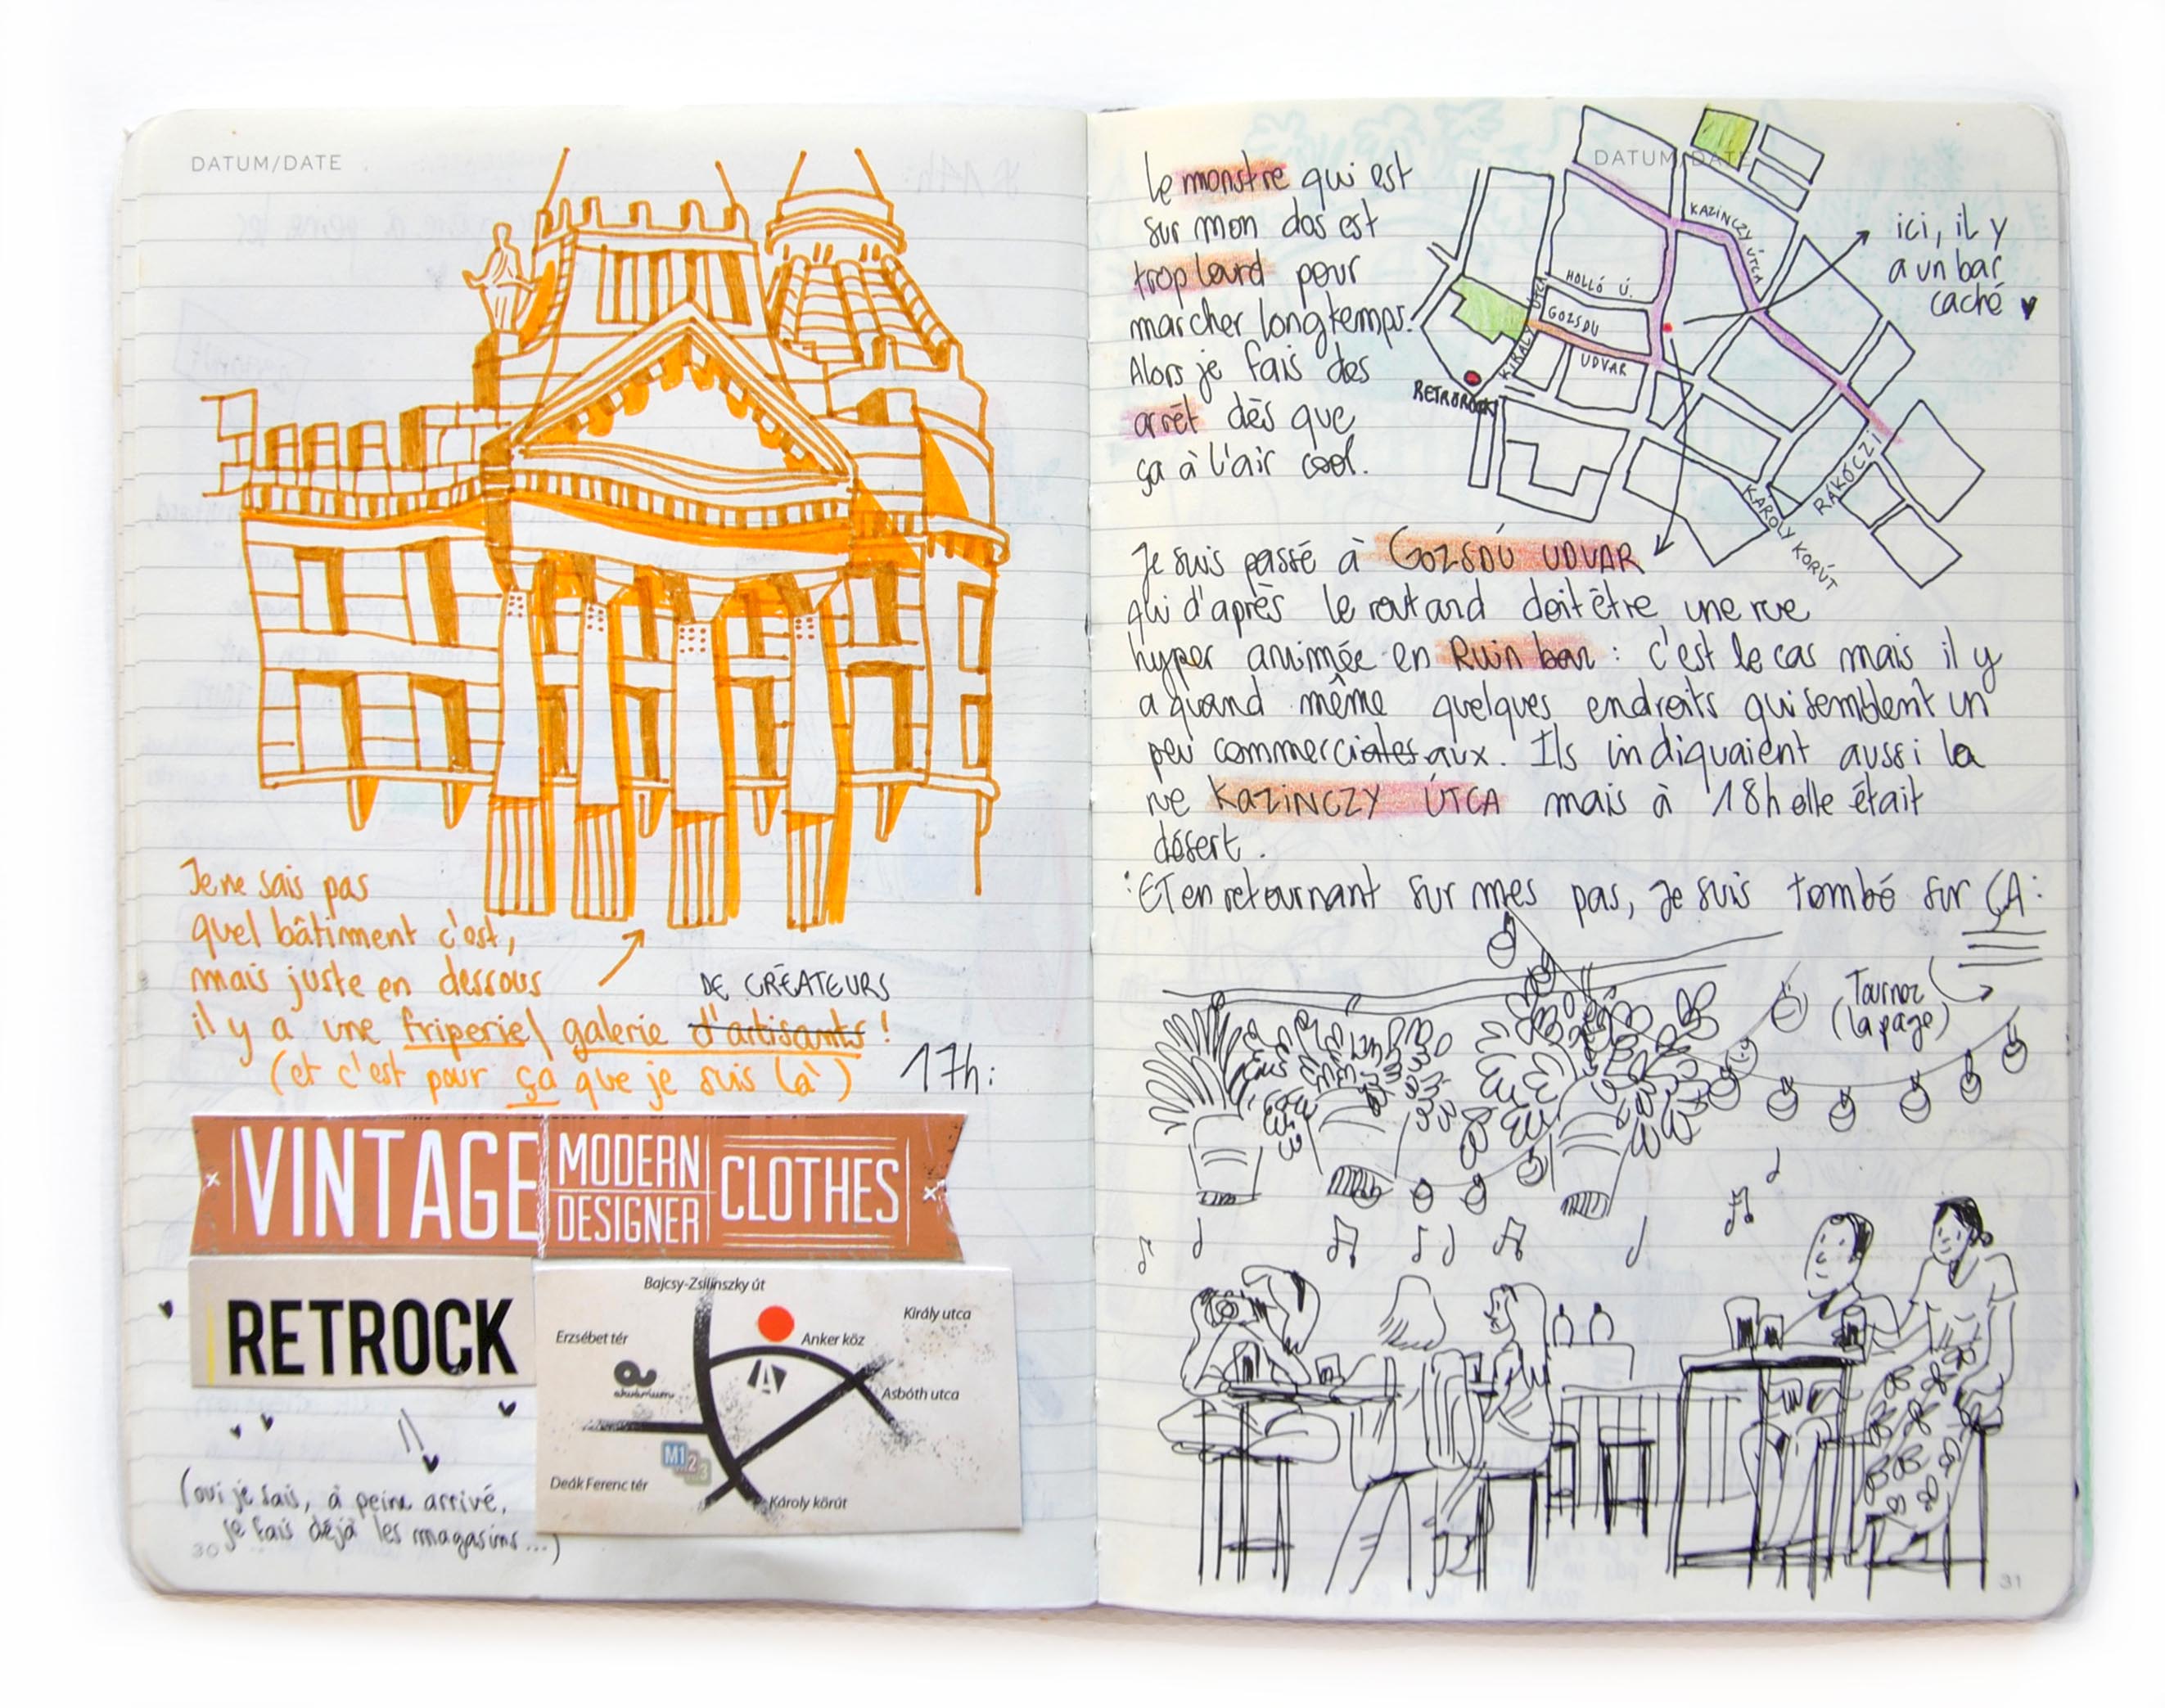 DATUM/DATE
Je ne sais pas
quel bâtiment c'est,
mais juste en dessous
DE CRÉATEURS
il y a une friperie\ galerie d'artisants !
(et c'est pour ça que je suis là)
17h:
VINTAGE MODERN DESIGNER CLOTHES
RETROCK
Bajcsy-Zsilinszky út
Király utca
Erzsébet tér
Anker köz
akvárium
Asbóth utca
M1 2 3
Deák Ferenc tér
Károly körút
(oui je sais, à peine arrivé,
je fais déjà les magasins...)
30
DATUM/DATE
Le monstre qui est
sur mon dos est
trop lourd pour
marcher longtemps.
Alors je fais des
arrêt dès que
ça à l'air cool.
KAZINCZY ÚTCA
HOLLÓ U.
GOZSDU
UDVAR
KIRALY ÚTCA
RETROROCK
RÁKÓCZI
KÁROLY KORÚT
ici, il y
a un bar
caché
Je suis passé à GOZSDÚ UDVAR
qui d'après le routard doit être une rue
hyper animée en Ruin bar : c'est le cas mais il y
a quand même quelques endroits qui semblent un
peu commerciales aux. Ils indiquaient aussi la
rue KAZINCZY ÚTCA mais à 18h elle était
désert.
ET en retournant sur mes pas, je suis tombé sur ÇA:
Tournez
(la page)
31